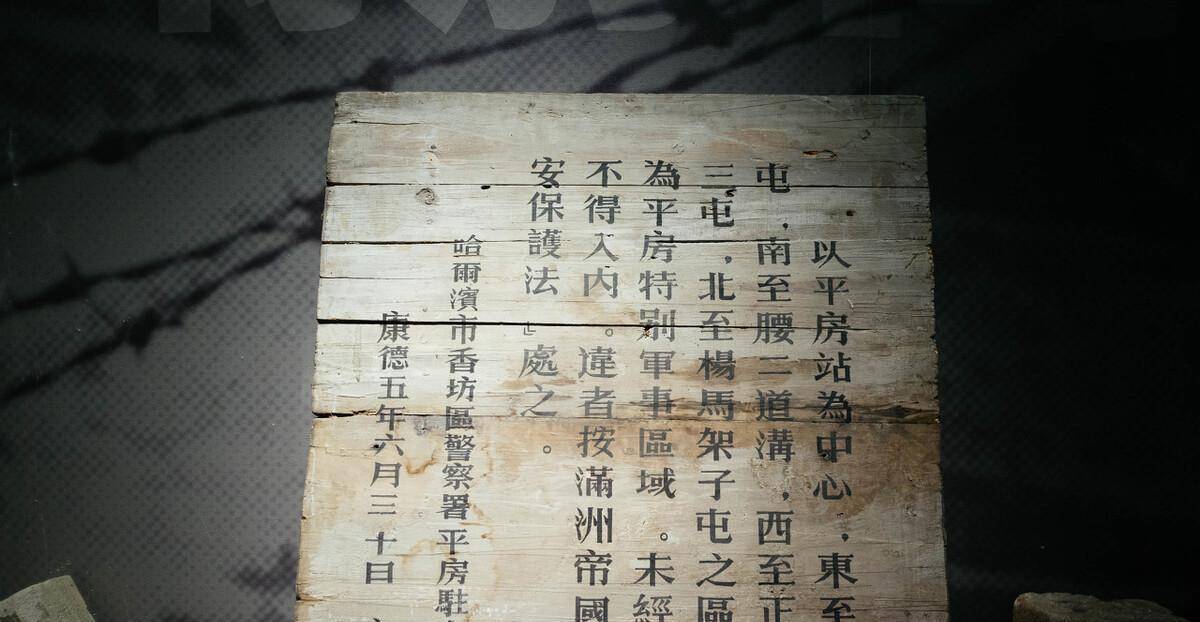 以平房站為中心，東至
屯，南至腰二道溝，西至正
三屯，北至楊馬架子屯之區
為平房特別軍事區域。未經
不得入內。違者按滿洲帝國
安保護法』處之。
哈爾濱市香坊區警察署平房駐
康德五年六月三十日